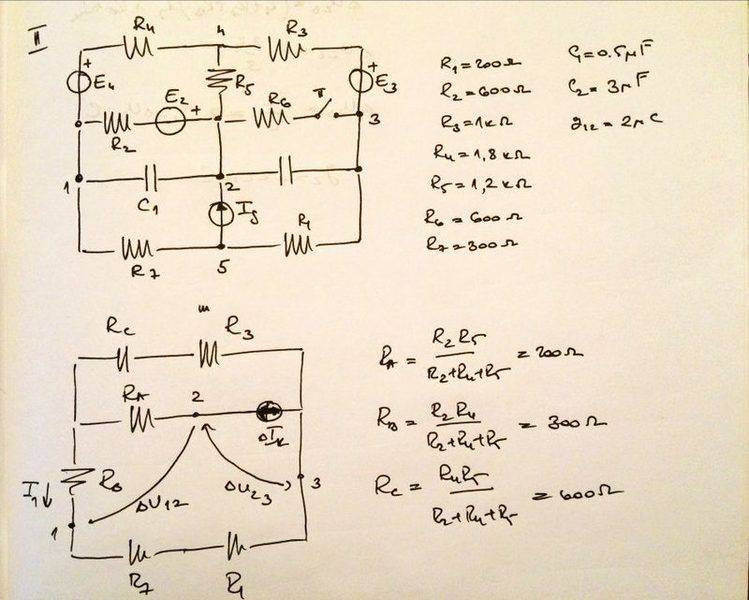 II
R4 4 R3
+ E4 R5 + E3
E2 + R6 π 3
R2
1 C1 2
Ig R1
R7 5
R1 = 200Ω
R2 = 600Ω
R3 = 1kΩ
R4 = 1,8 kΩ
R5 = 1,2 kΩ
R6 = 600Ω
R7 = 300Ω
C1 = 0.5μF
C2 = 3μF
q12 = 2μC
Rc R3
RA 2
ΔIk
I1 RB ΔU12 ΔU23 3
1
R7 R1
RA = R2 R5 / R2+R4+R5 = 200Ω
RB = R2 R4 / R2+R4+R5 = 300Ω
Rc = R4 R5 / R2+R4+R5 = 600Ω